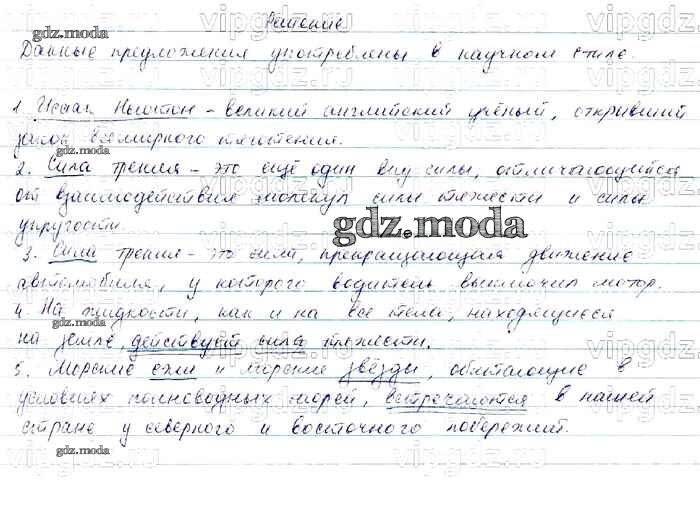 Решение
Данные предложения употреблены в научном стиле.
1. Исаак Ньютон - великий английский учёный, открывший
закон всемирного тяготения.
2. Сила трения - это ещё один вид силы, отличающийся
от взаимодействия молекул силы тяжести и силы
упругости.
3. Сила трения - это сила, прекращающая движение
автомобиля, у которого водитель выключил мотор.
4. На жидкости, как и на все тела, находящиеся
на земле, действует сила тяжести.
5. Морские ежи и морские звёзды, обитающие в
условиях полноводных морей, встречаются в нашей
стране у северного и восточного побережий.
gdz.moda
gdz.moda
gdz.moda
gdz.moda
gdz.moda
vipgdz.ru